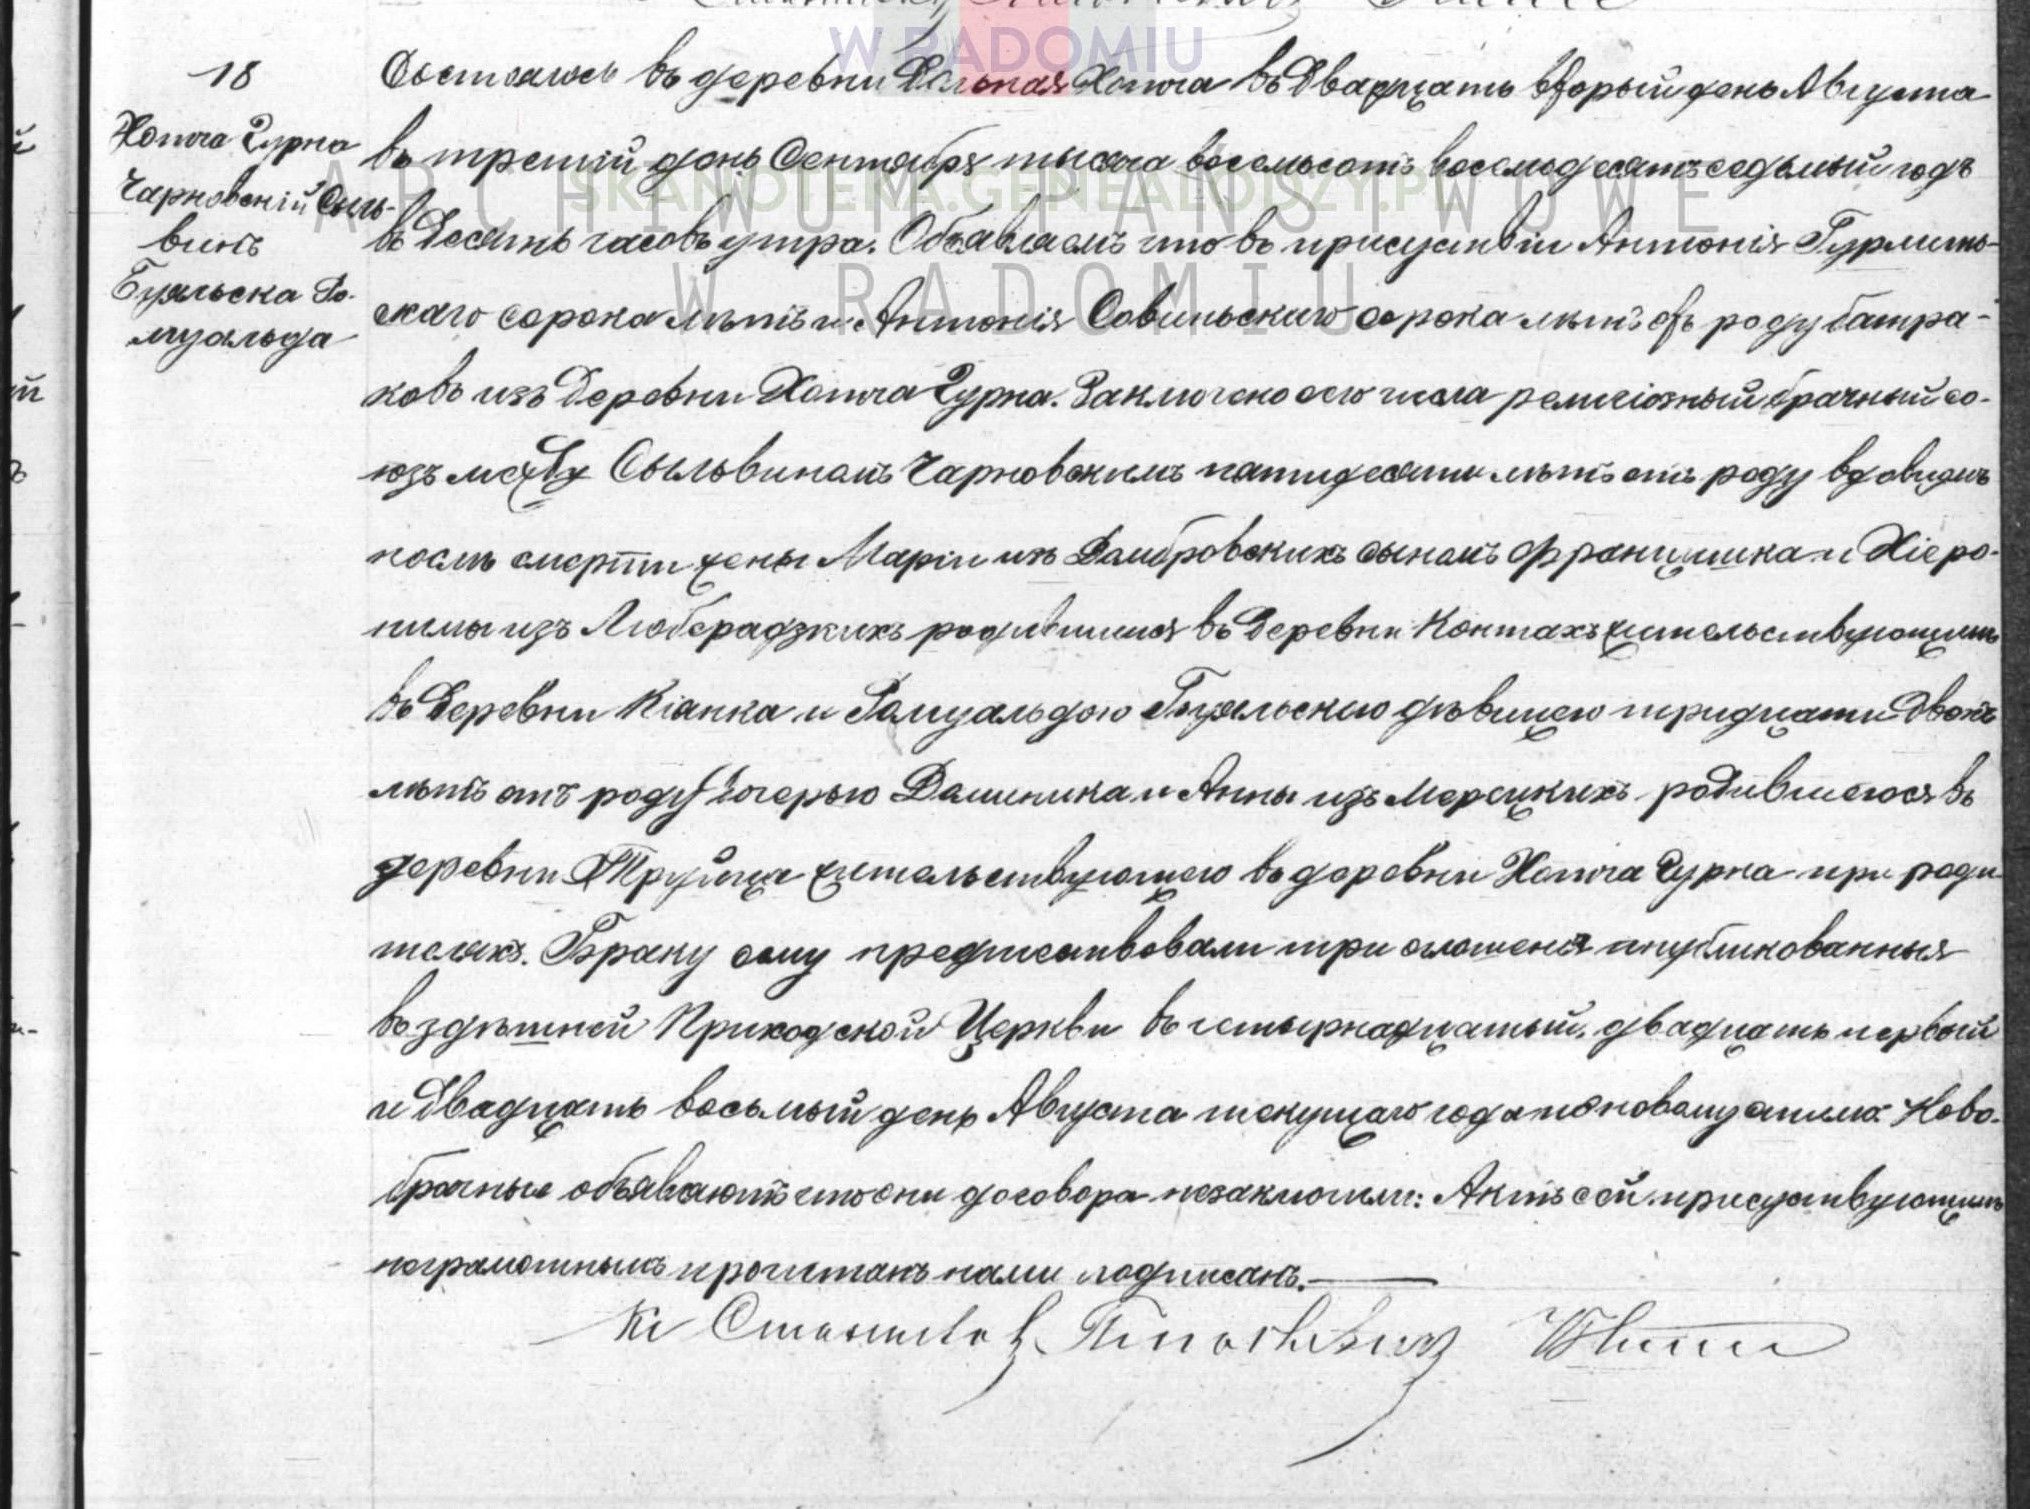 18
Хотча Гурна
Чарновскій Сыль-
винъ
Буяльска Ро-
муальда
Состоялось въ деревни Дольная Хотча въ Двадцать второый день Августа
въ третій день Сентября тысяча восемьсотъ восемьдесятъ седьмый годъ
въ Десять часовъ утра. Объявляемъ что въ присуствіи Антонія Гурлинь-
скаго сорока лѣтъ и Антонія Совиньскаго сорока лѣтъ отъ роду батра-
ковъ изъ Деревни Хотча Гурна. Заключено сего числа религіозный брачный со-
юзъ между Сыльвиномъ Чарновскимъ пятидесяти лѣтъ отъ роду вдовцемъ
послѣ смерти жены Маріи изъ Домбровскихъ сыномъ Францишка и Хіеро-
нимы изъ Люберадзкихъ родившимся въ Деревни Контахъ жительствующимъ
въ Деревни Кіанка и Ромуальдою Буяльскою дѣвицею тридцати двохъ
лѣтъ отъ роду дочерью Доминика и Анны изъ Мерсцикихъ родившеюся въ
деревни Труйца жительствующею въ деревни Хотча Гурна при роди-
теляхъ. Браку сему предшествовали три оглошенія опубликованныя
въ здѣшней Приходской Церкви въ четырнадцатый, двадцать первый
и Двадцать восьмый день Августа текущаго года по новому стилю. Ново-
брачные объявляютъ что они договора незаключили: Актъ сей присуствующимъ
неграмотнымъ прочитанъ нами подписанъ.
Кс Станислав
W RADOMIU
ARCHIWUM PAŃSTWOWE
W RADOMIU
SKANOTEKA.GENEALODZY.PL